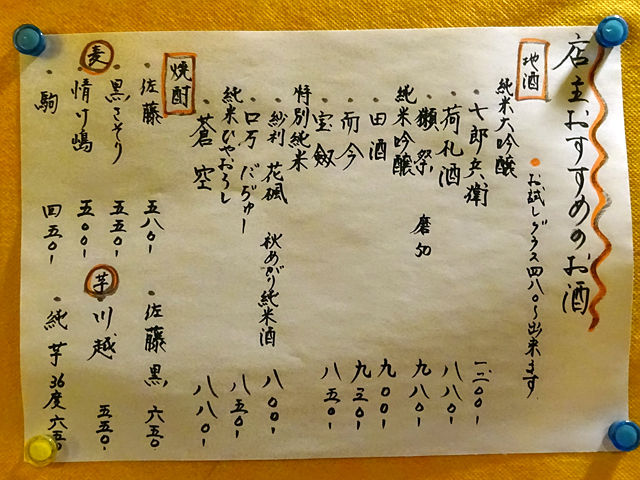 店主おすすめのお酒
地酒
お試しグラス四八〇〜出来ます
純米大吟醸
・十郎兵衛 一二〇〇-
・荷札酒 八八〇-
・獺祭 磨50 九八〇-
純米吟醸
・田酒 九〇〇-
・而今 九三〇-
・宝剱 八五〇-
特別純米
・紗利 花楓 秋あがり純米酒 八〇〇-
純米ひやおろし
・口万 だぢゅー 八五〇-
・蒼空 八八〇-
焼酎
麦
・佐藤 五八〇-
・黒さそり 五五〇-
・情け嶋 五〇〇-
・駒 四五〇-
芋
・佐藤黒 六五〇
・川越 五五〇-
・純芋36度 六五〇